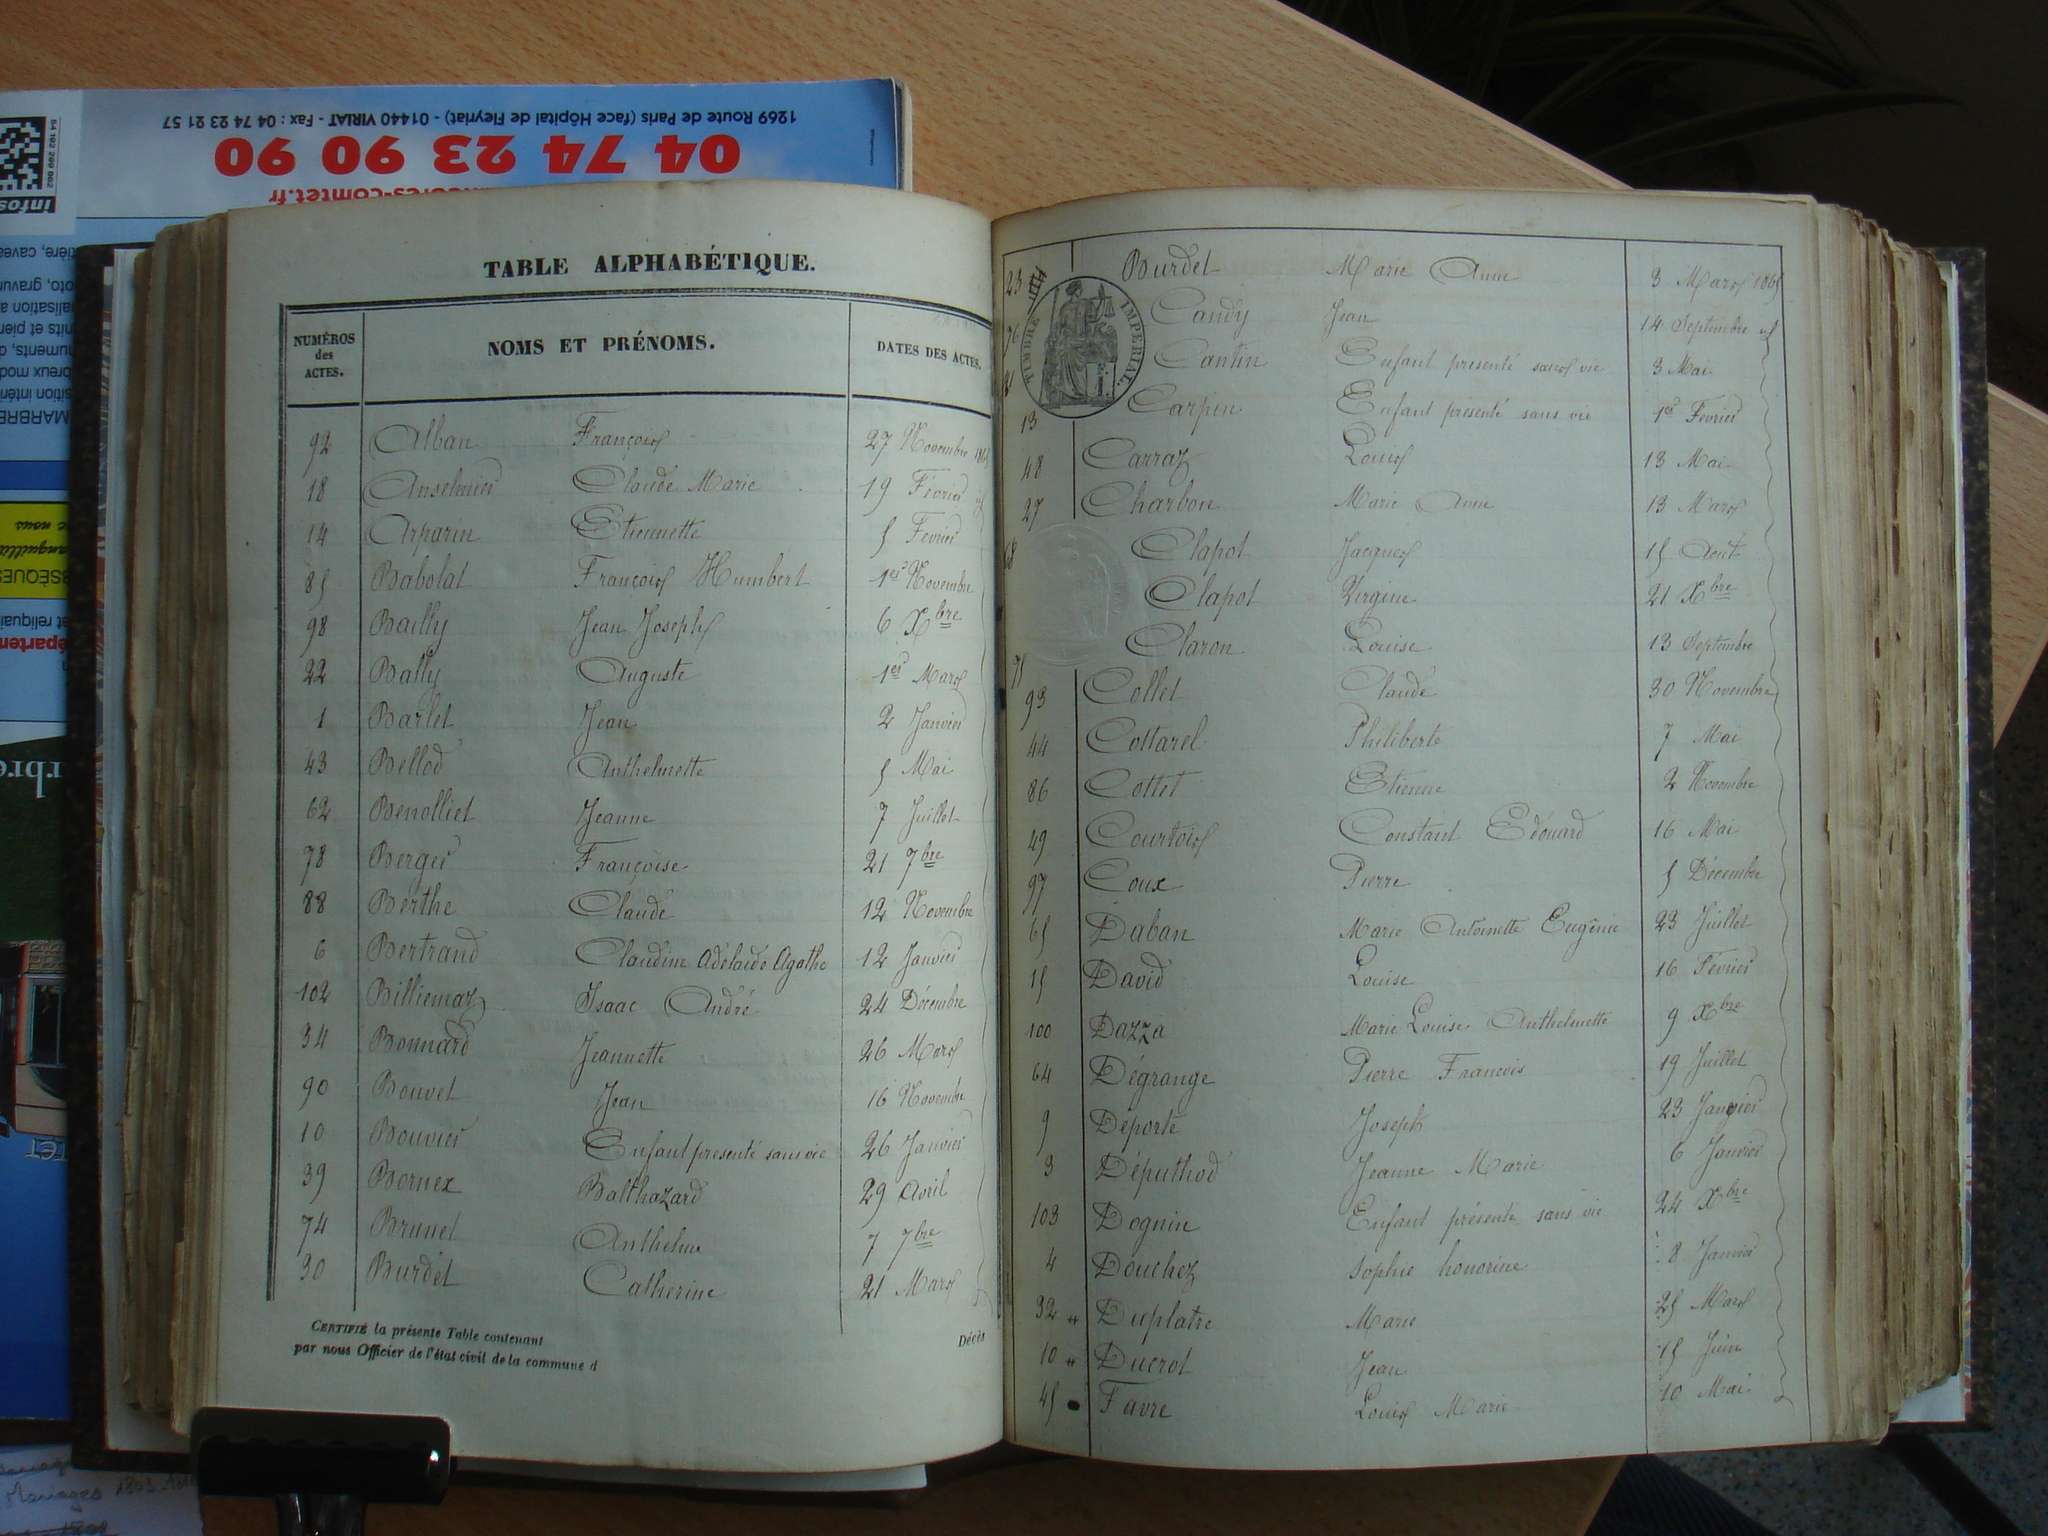 1269 Route de Paris (face Hôpital de Fleyriat) - 01440 VIRIAT - Fax : 04 74 23 21 57
04 74 23 90 90
-comtet.fr
TABLE ALPHABÉTIQUE.
NUMÉROS des ACTES. NOMS ET PRÉNOMS. DATES DES ACTES.
92 Alban François 27 Novembre
18 Anselmier Claude Marie 19 Février
14 Arparin Etiennette 5 Février
85 Babolat François Humbert 1er Novembre
98 Bailly Jean Joseph 6 Xbre
22 Bally Auguste 1er Mars
1 Barlet Jean 2 Janvier
43 Bellod Anthelmette 5 Mai
62 Benolliet Jeanne 7 Juillet
78 Berger Françoise 21 7bre
88 Berthe Claude 12 Novembre
6 Bertrand Claudine Adélaide Agathe 12 Janvier
102 Billiemaz Isaac André 24 Décembre
34 Bonnard Jeannette 26 Mars
90 Bouvet Jean 16 Novembre
10 Bouvier Enfant presenté sans vie 26 Janvier
39 Bornex Balthazard 29 Avril
74 Brunet Anthelme 7 7bre
30 Burdet Catherine 21 Mars
CERTIFIÉ la présente Table contenant
par nous Officier de l'état civil de la commune d
Décès
TIMBRE IMPERIAL.
23 Burdet Marie Anne 3 Mars 1865
76 Candy Jean 14 Septembre
Cantin Enfant présenté sans vie 3 Mai
13 Carpin Enfant présenté sans vie 1er Février
48 Carraz Louis 13 Mai
27 Charbon Marie Anne 13 Mars
68 Clapot Jacques 15 Aout
Clapot Virgine 21 Xbre
75 Claron Louise 13 Septembre
93 Collet Claude 30 Novembre
44 Cottarel Philiberte 7 Mai
86 Cottet Etienne 2 Novembre
49 Courtois Constant Edouard 16 Mai
97 Coux Pierre 5 Décembre
65 Daban Marie Antoinette Eugénie 23 Juillet
15 David Louise 16 Février
100 Dazza Marie Louise Anthelmette 9 Xbre
64 Dégrange Pierre François 19 Juillet
9 Déporte Joseph 23 Janvier
3 Députhod Jeanne Marie 6 Janvier
103 Dognin Enfant présenté sans vie 24 Xbre
4 Douchez Sophie honorine 8 Janvier
32 Duplatre Marie 25 Mars
10 Ducrot Jean 15 Juin
45 Favre Louis Marie 10 Mai
Mariages